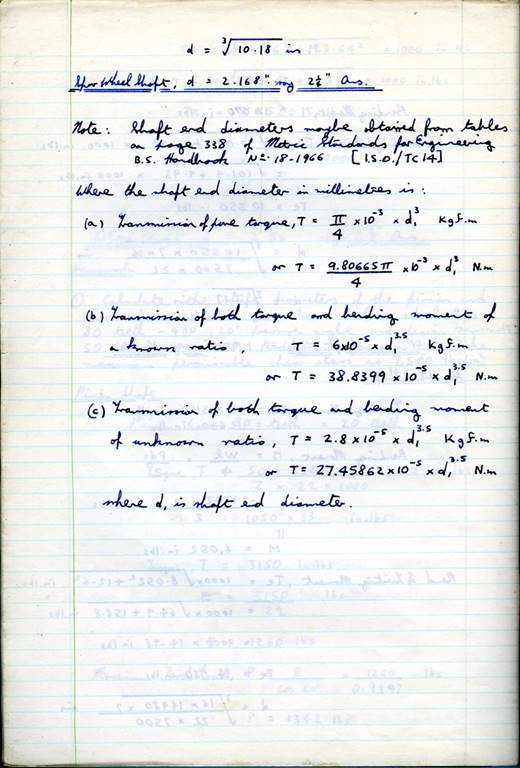 d = ∛10.18 in
Spur Wheel Shaft, d = 2.168" say 2¼" Ans.
Note: Shaft end diameters maybe obtained from tables
on page 338 of Metric Standards for Engineering
B.S. Handbook No. 18-1966 [I.S.O./TC14]
Where the shaft end diameter in millimetres is:
(a) Transmission of pure torque, T = π/4 x 10⁻³ x d₁³ Kgf.m
or T = 9.80665π/4 x 10⁻³ x d₁³ N.m
(b) Transmission of both torque and bending moment of
a known ratio, T = 6x10⁻⁵ x d₁^3.5 Kgf.m
or T = 38.8399 x 10⁻⁵ x d₁^3.5 N.m
(c) Transmission of both torque and bending moment
of unknown ratio, T = 2.8 x 10⁻⁵ x d₁^3.5 Kgf.m
or T = 27.45862 x 10⁻⁵ x d₁^3.5 N.m
where d₁ is shaft end diameter.